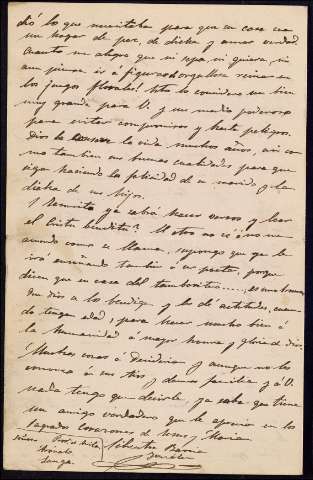 dió lo que necesitaba para que su casa sea
un hogar de paz, de dicha y amor verdad.
Cuanto me alegra que ni sepa, ni quiera, ni
aun piense ir a figurar de orgullosa reina en
los juegos florales! Esto lo considero un bien
muy grande para V. y un medio poderoso
para evitar compromisos y hasta peligros.
Dios le conserve la vida muchos años, así co-
mo tambien sus buenas cualidades para que
siga haciendo la felicidad de su marido y la
dicha de sus hijos.
¿Ramirito ya sabrá hacer versos y besar
el Cristu bendito? Al otro no sé, no re-
cuerdo como se llama, supongo que que le
irá enseñando tambien á ser poeta, porque
dicen que en casa del tamboritero.....
Que Dios a los bendiga y les dé aptitudes, cuan-
do tengan edad, para hacer mucho bien á
la humanidad á mayor honra y gloria de Dios.
Muchas cosas á y aunque no les
conozca á sus tios y demas familia y á V.
nada tengo que decirle, ya sabe que tiene
un amigo verdadero que le aprecia en los
Sagrados Corazones de Jesus y Maria